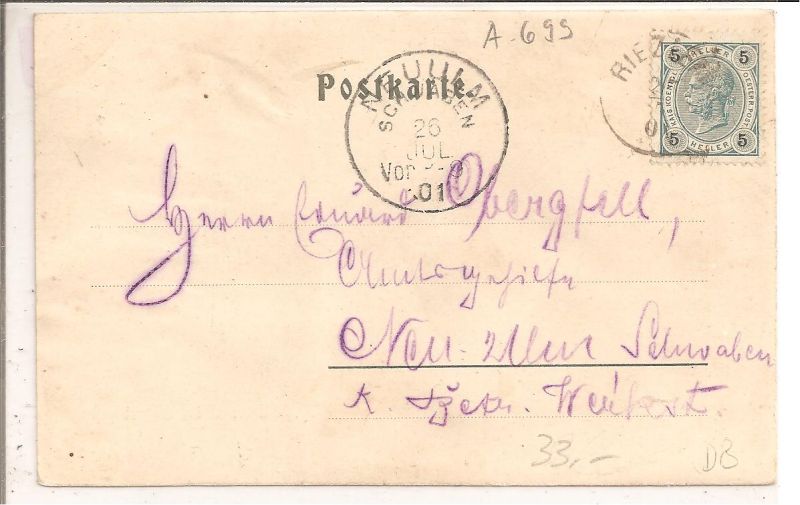 A. 699
Postkarte.
NEU ULM
SCHWABEN
26
JUL
Vor
01
RIEZ
5 HELLER 5
KAIS. KOENIGL. OESTERR. POST
5 HELLER 5
Herrn Eduard Obergfell,
Amtsgehilfe
Neu-Ulm Schwaben
k.
33,-
DB